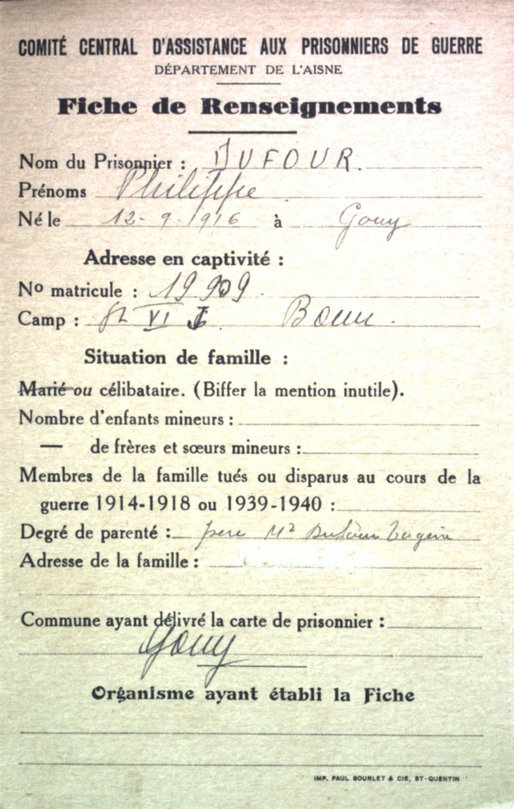 COMITÉ CENTRAL D'ASSISTANCE AUX PRISONNIERS DE GUERRE
DÉPARTEMENT DE L'AISNE
Fiche de Renseignements
Nom du Prisonnier : DUFOUR.
Prénoms Philippe
Né le 12-9-1916 à Gouy
Adresse en captivité :
No matricule : 19909.
Camp : VI
Situation de famille :
Marié ou célibataire. (Biffer la mention inutile).
Nombre d'enfants mineurs :
— de frères et sœurs mineurs :
Membres de la famille tués ou disparus au cours de la
guerre 1914-1918 ou 1939-1940 :
Degré de parenté : père Mr Dufour
Adresse de la famille :
Commune ayant délivré la carte de prisonnier :
Gouy
Organisme ayant établi la Fiche
IMP. PAUL BOURLET & CIE, ST-QUENTIN